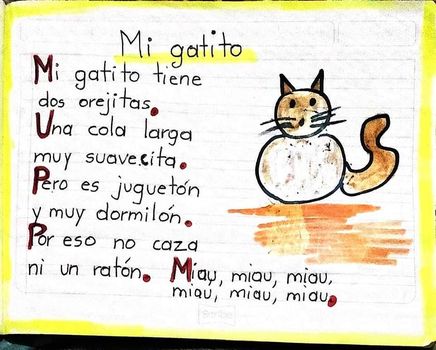 Mi gatito
Mi gatito tiene
dos orejitas.
Una cola larga
muy suavecita.
Pero es juguetón
y muy dormilón.
Por eso no caza
ni un ratón. Miau, miau, miau,
miau, miau, miau.
Scribe